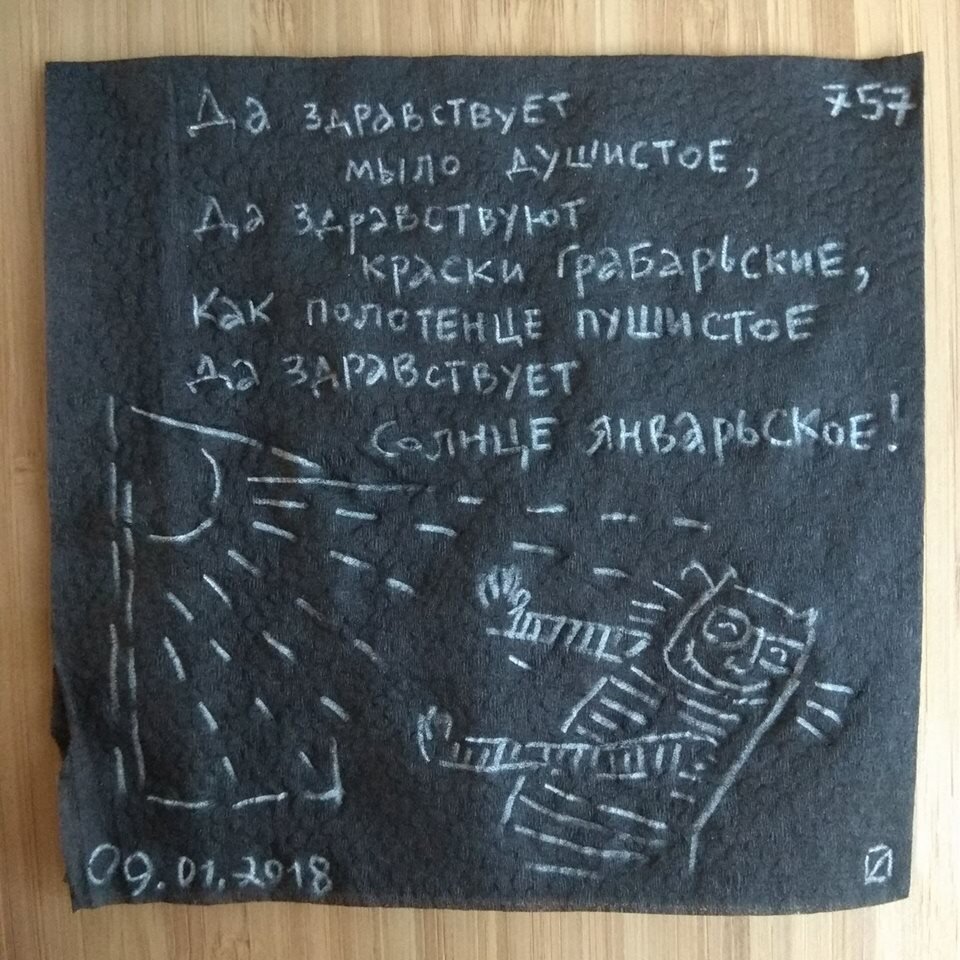 757
Да здравствует
мыло душистое,
Да здравствуют
краски грабарьские,
Как полотенце пушистое
Да здравствует
Солнце январьское!
09.01.2018